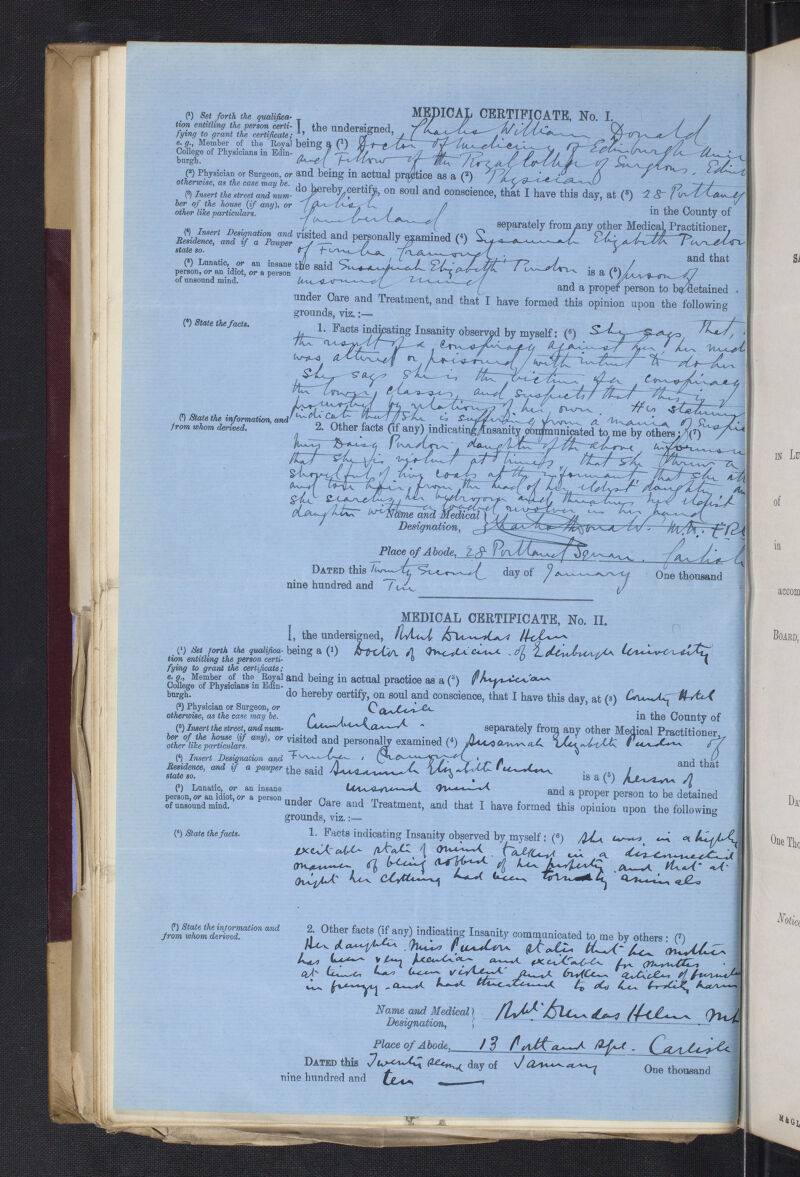 MEDICAL CERTIFICATE, No. I.
(1) Set forth the qualifica-
tion entitling the person certi-
fying to grant the certificate;
e. g., Member of the Royal
College of Physicians in Edin-
burgh.
(2) Physician or Surgeon, or
otherwise, as the case may be.
(3) Insert the street and num-
ber of the house (if any), or
other like particulars.
(4) Insert Designation and
Residence, and if a Pauper
state so.
(5) Lunatic, or an insane
person, or an idiot, or a person
of unsound mind.
(6) State the facts.
(7) State the information, and
from whom derived.
I, the undersigned, Charles William Donald
being a (1) Doctor of Medicine of Edinburgh
and Fellow of the Royal College of Surgeons, Edinb
and being in actual practice as a (2) Physician
do hereby certify, on soul and conscience, that I have this day, at (3) 28 Portland
Carlisle in the County of
Cumberland separately from any other Medical Practitioner,
visited and personally examined (4) Susannah Elizabeth Purdon
of Cramond and that
the said Susannah Elizabeth Purdon is a (5) person of
unsound mind and a proper person to be detained
under Care and Treatment, and that I have formed this opinion upon the following
grounds, viz.:—
1. Facts indicating Insanity observed by myself: (6) She says that,
the result of a conspiracy against her, her
was altered or poisoned with intent to do her
She says she is the victim of a conspiracy
the lower classes, and suspects that this is
promoted by relations of her own. Her
indicate that she is suffering from a mania of
2. Other facts (if any) indicating Insanity communicated to me by others: (7)
Miss Daisy Purdon, daughter of the above, informs
that she is violent at times, that she threw a
shovelful of live coals at the informant, that she
and tore hair from the head of her eldest daughter
she searches her bedroom and threatens her eldest
daughter with a loaded revolver in her hand
Name and Medical
Designation, Charles W Donald. M.D. F.R.C
Place of Abode, 28 Portland Square. Carlisle
DATED this Twenty Second day of January One thousand
nine hundred and Ten
MEDICAL CERTIFICATE, No. II.
(1) Set forth the qualifica-
tion entitling the person certi-
fying to grant the certificate;
e. g., Member of the Royal
College of Physicians in Edin-
burgh.
(2) Physician or Surgeon, or
otherwise, as the case may be.
(3) Insert the street, and num-
ber of the house (if any), or
other like particulars.
(4) Insert Designation and
Residence, and if a pauper
state so.
(5) Lunatic, or an insane
person, or an idiot, or a person
of unsound mind.
(6) State the facts.
(7) State the information and
from whom derived.
I, the undersigned, Robert Dundas Helm
being a (1) Doctor of Medicine of Edinburgh University
and being in actual practice as a (2) Physician
do hereby certify, on soul and conscience, that I have this day, at (3) County Hotel
Carlisle in the County of
Cumberland separately from any other Medical Practitioner,
visited and personally examined (4) Susannah Elizabeth Purdon of
Cramond and that
the said Susannah Elizabeth Purdon is a (5) person of
unsound mind and a proper person to be detained
under Care and Treatment, and that I have formed this opinion upon the following
grounds, viz.:—
1. Facts indicating Insanity observed by myself: (6) She was in a highly
excitable state of mind, talked in a disconnected
manner of being robbed of her property and that at
night her clothing had been torn by animals
2. Other facts (if any) indicating Insanity communicated to me by others: (7)
Her daughter Miss Purdon states that her mother
has been very peculiar and excitable for months
at times has been violent and broken articles of
in frenzy and had threatened to do her bodily harm
Name and Medical
Designation, Robt Dundas Helm
Place of Abode, 13 Portland Sqre. Carlisle
DATED this Twenty second day of January One thousand
nine hundred and ten
IN
of
in
accom
BOARD,
One Tho
Notice
M&GL